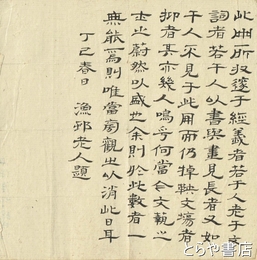 此冊所収邃于經義者若干人老于文
詞者若干人以書與畫見長者又如
干人不見于此冊而仍掉鞅文場者
抑者其亦幾人嗚乎何當今文執之
士之蔚然以盛也余則於此數者一
無能焉則唯當旁觀坐以消此日耳
丁巳春日 漁邨老人題
とらや書店